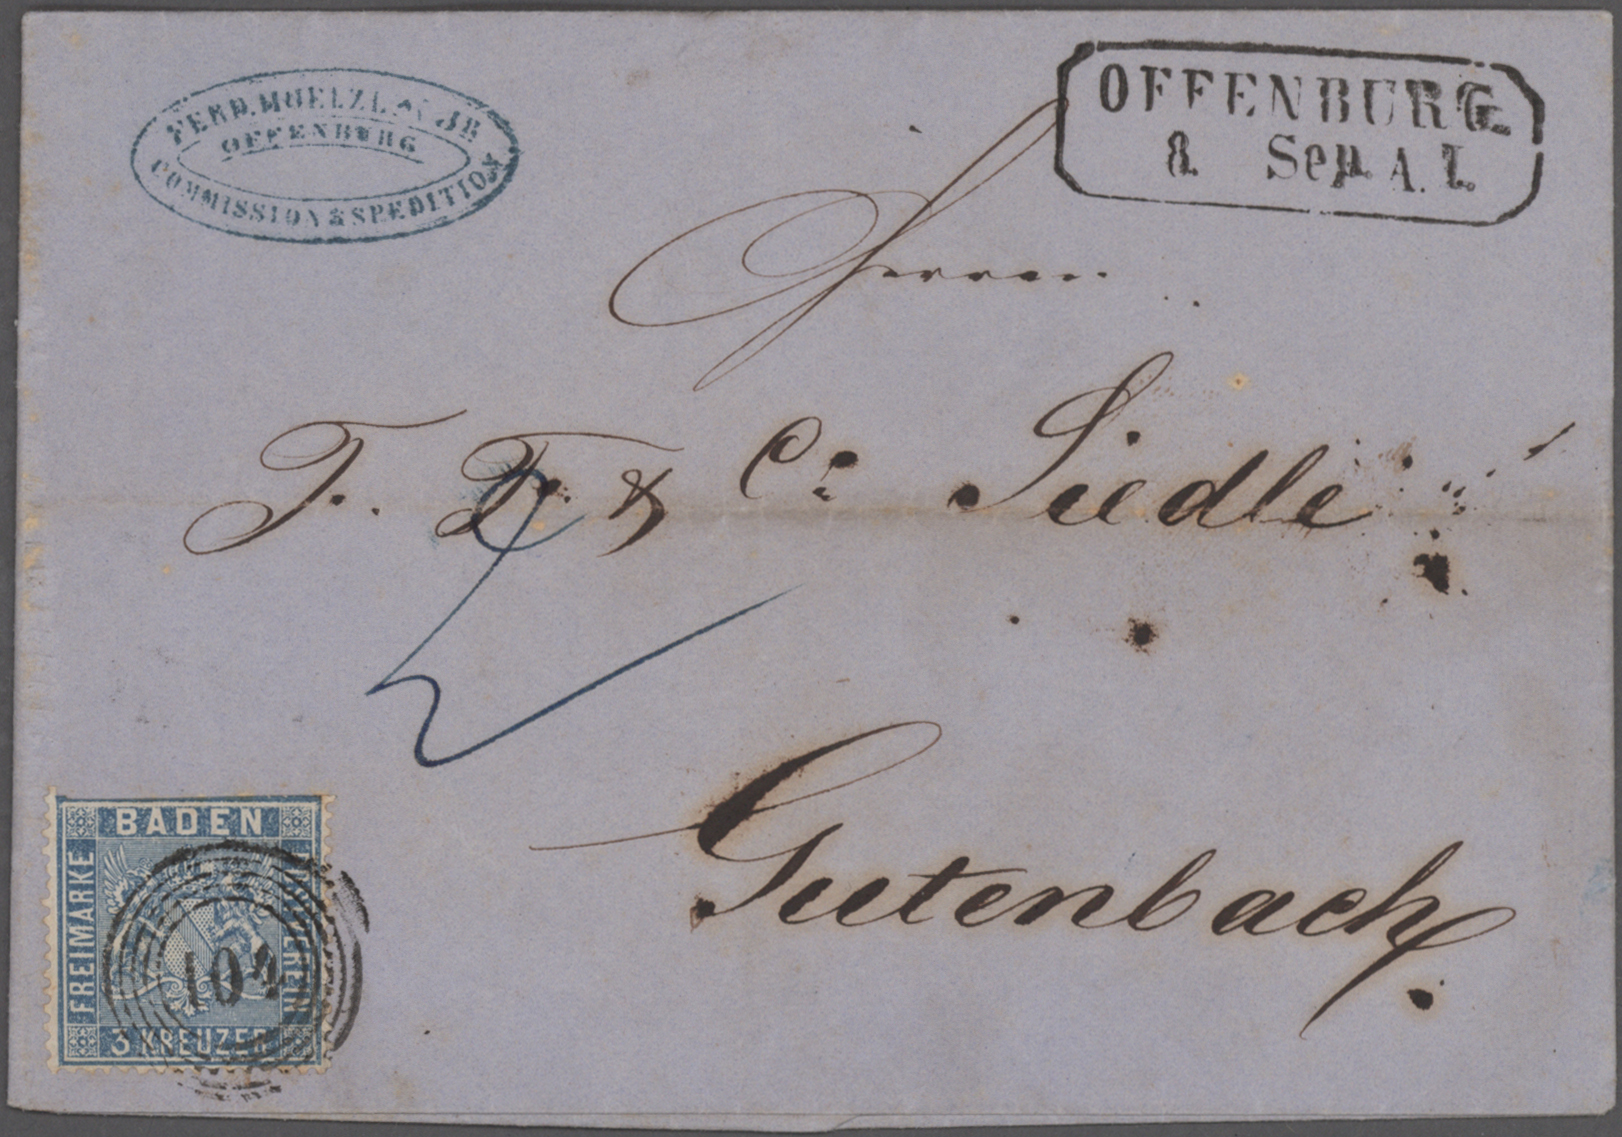 FERD. MOELZL JR
OFFENBURG
COMMISSION & SPEDITION
OFFENBURG
8. Sep. A. I.
Herren
F. X. & Co Siedle
2
Gutenbach.
BADEN
FREIMARKE
POSTVEREIN
3 KREUZER
104